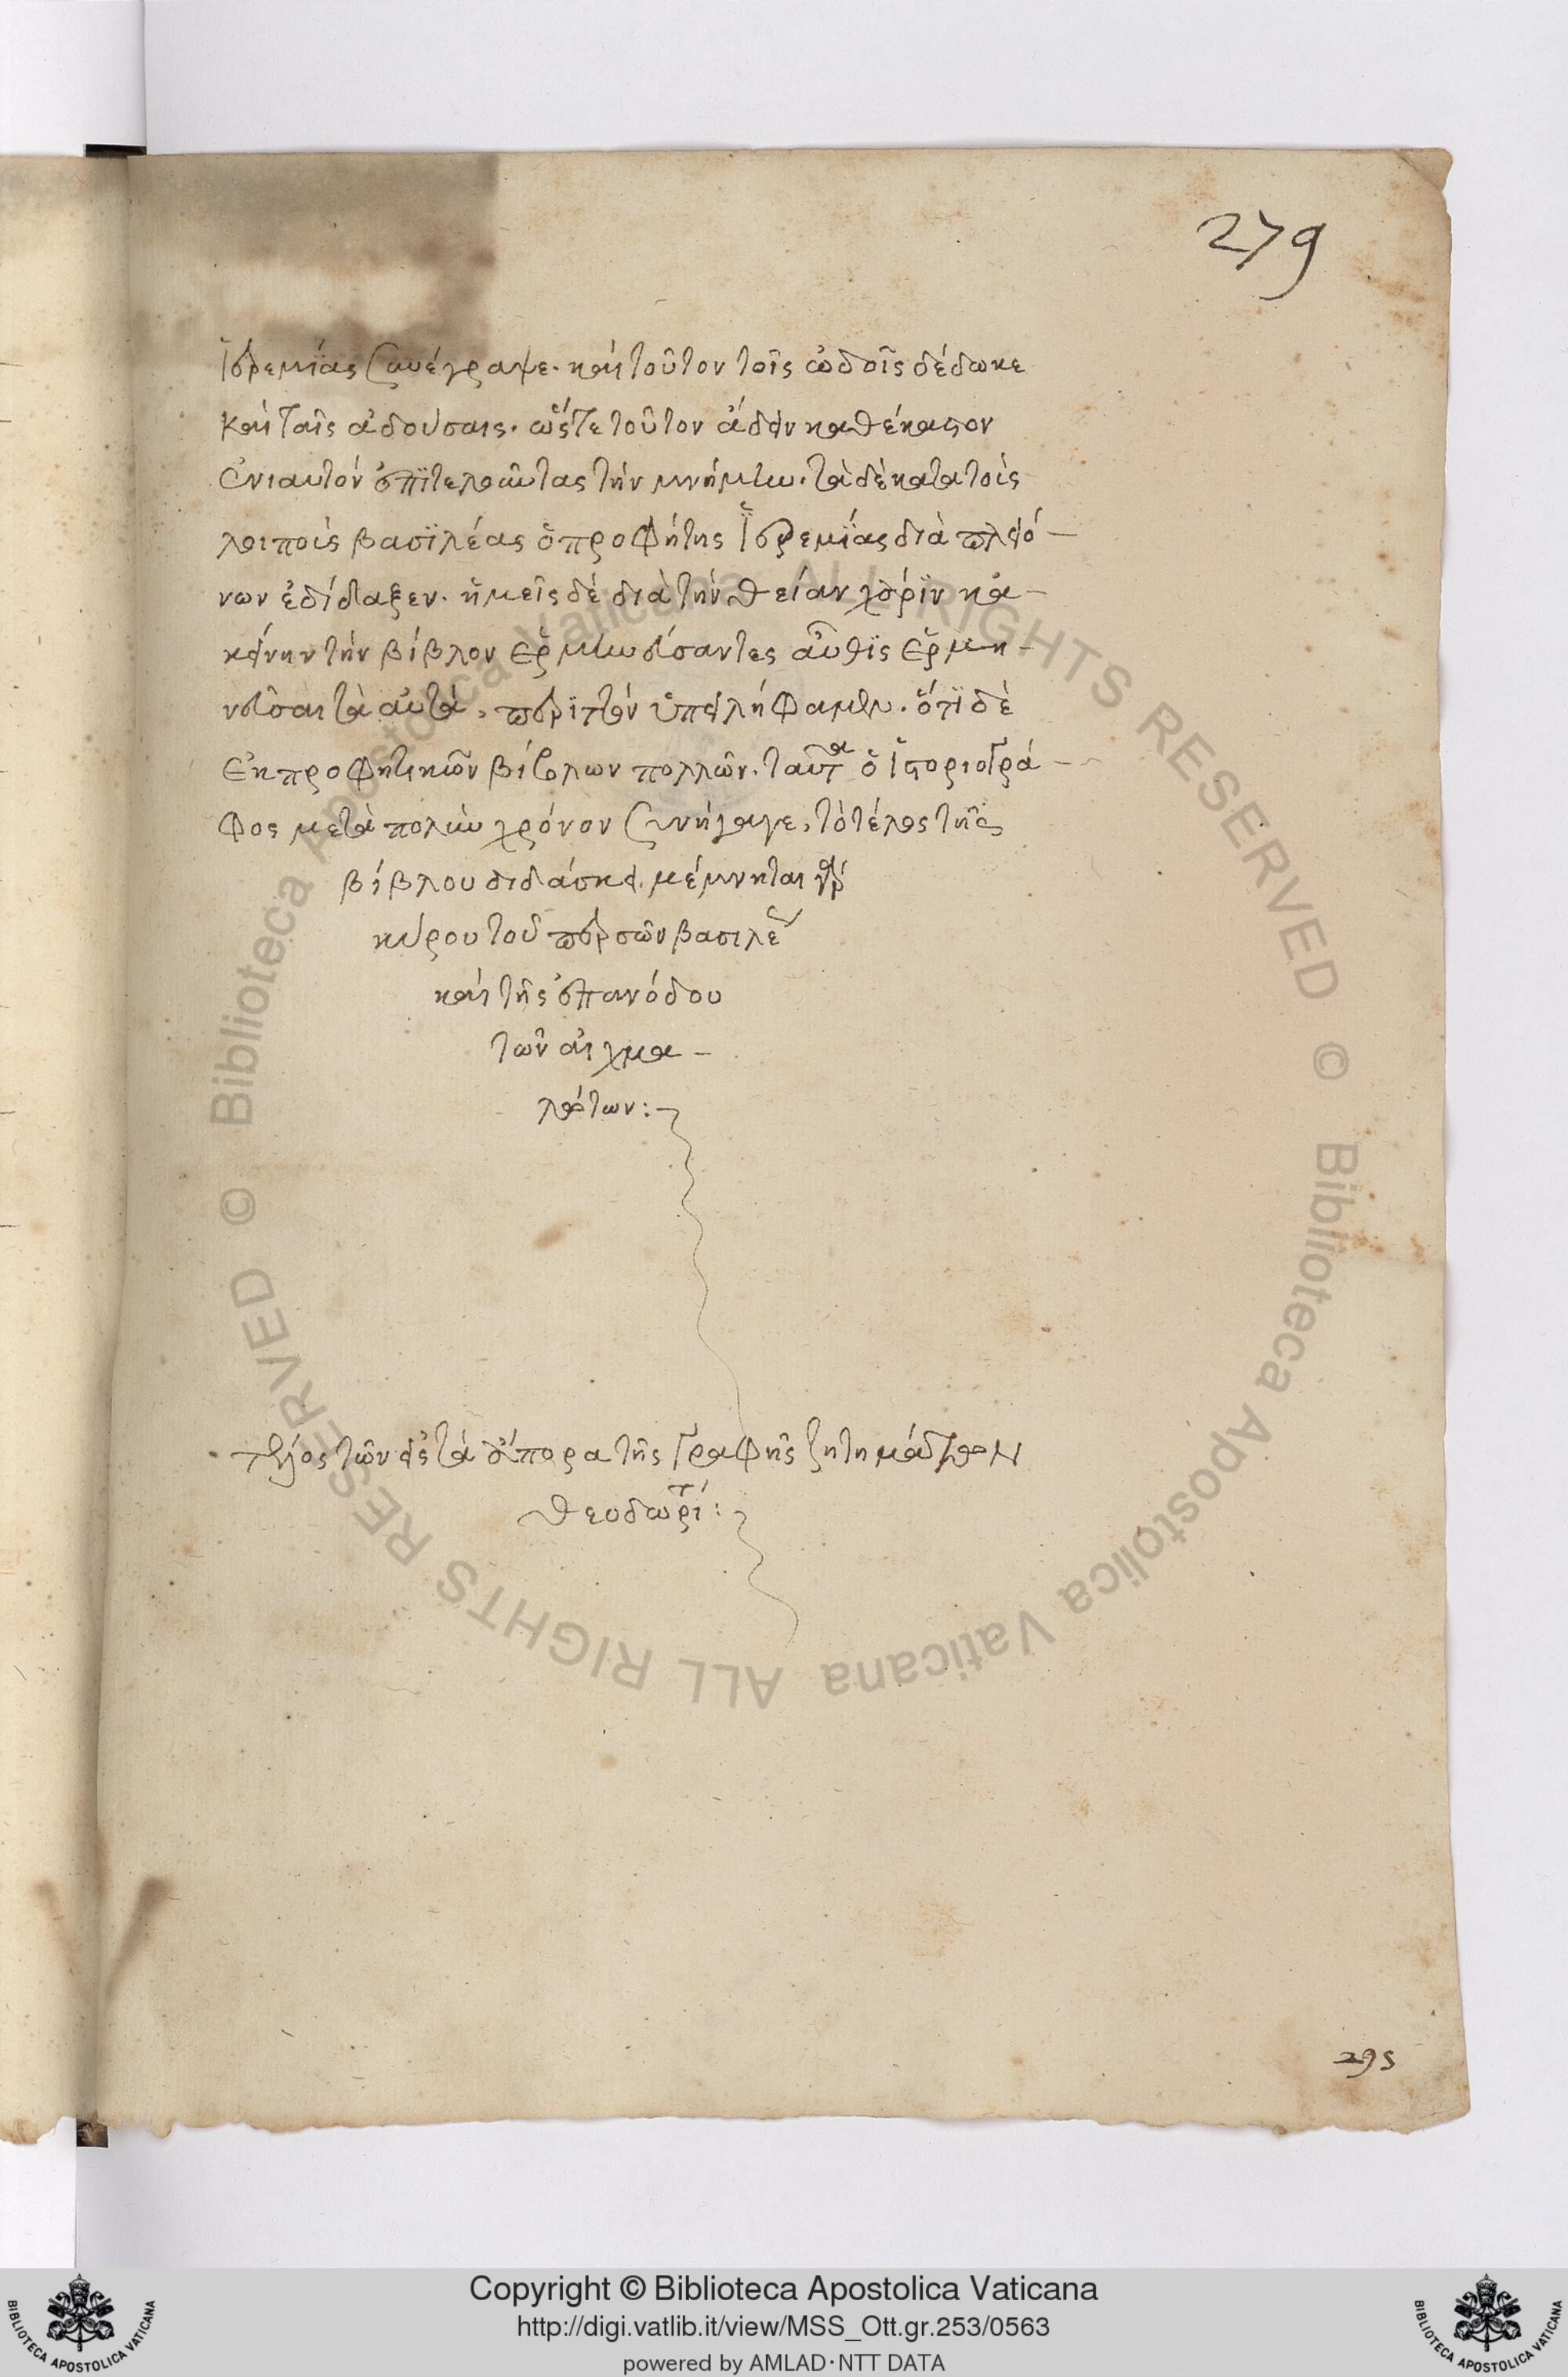 279
Ἱερεμίας συνέγραψε. καὶ τοῦτον τοῖς ὠδοῖς δέδωκε
καὶ ταῖς ἀδούσαις. ὥστε τοῦτον ἄδειν καθέκαστον
ἐνιαυτὸν ἐπιτελοῦντας τὴν μνήμην. τὰ δὲ κατὰ τοὺς
λοιποὺς βασϊλέας ὁ προφήτης Ἱερεμΐας διὰ πλειό-
νων ἐδίδαξεν. ἡμεῖς δὲ διὰ τὴν θείαν χάρϊν κἀ-
κείνην τὴν βίβλον ἑρμηνεύσαντες αὖθϊς ἑρμη-
νεῦσαι τὰ αὐτὰ, περϊττὸν ὑπειλήφαμεν. ὅτϊ δὲ
ἐκ προφητικῶν βίβλων πολλῶν. ταῦτα ὁ ἱστοριογρά-
φος μετὰ πολὺν χρόνον συνήγαγε, τὸ τέλος τῆς
βίβλου διδάσκει. μέμνηται γὰρ
κύρου τοῦ περσῶν βασιλέως
καὶ τῆς ἐπανόδου
τῶν αἰχμα-
λώτων:
τέλος τῶν εἰς τὰ ἄπορα τῆς γραφῆς ζητημάτων
θεοδωρίτ:
295
© Biblioteca Apostolica Vaticana ALL RIGHTS RESERVED © Biblioteca Apostolica Vaticana ALL RIGHTS RESERVED
BIBLIOTECA APOSTOLICA VATICANA
Copyright © Biblioteca Apostolica Vaticana
http://digi.vatlib.it/view/MSS_Ott.gr.253/0563
powered by AMLAD·NTT DATA
BIBLIOTECA APOSTOLICA VATICANA